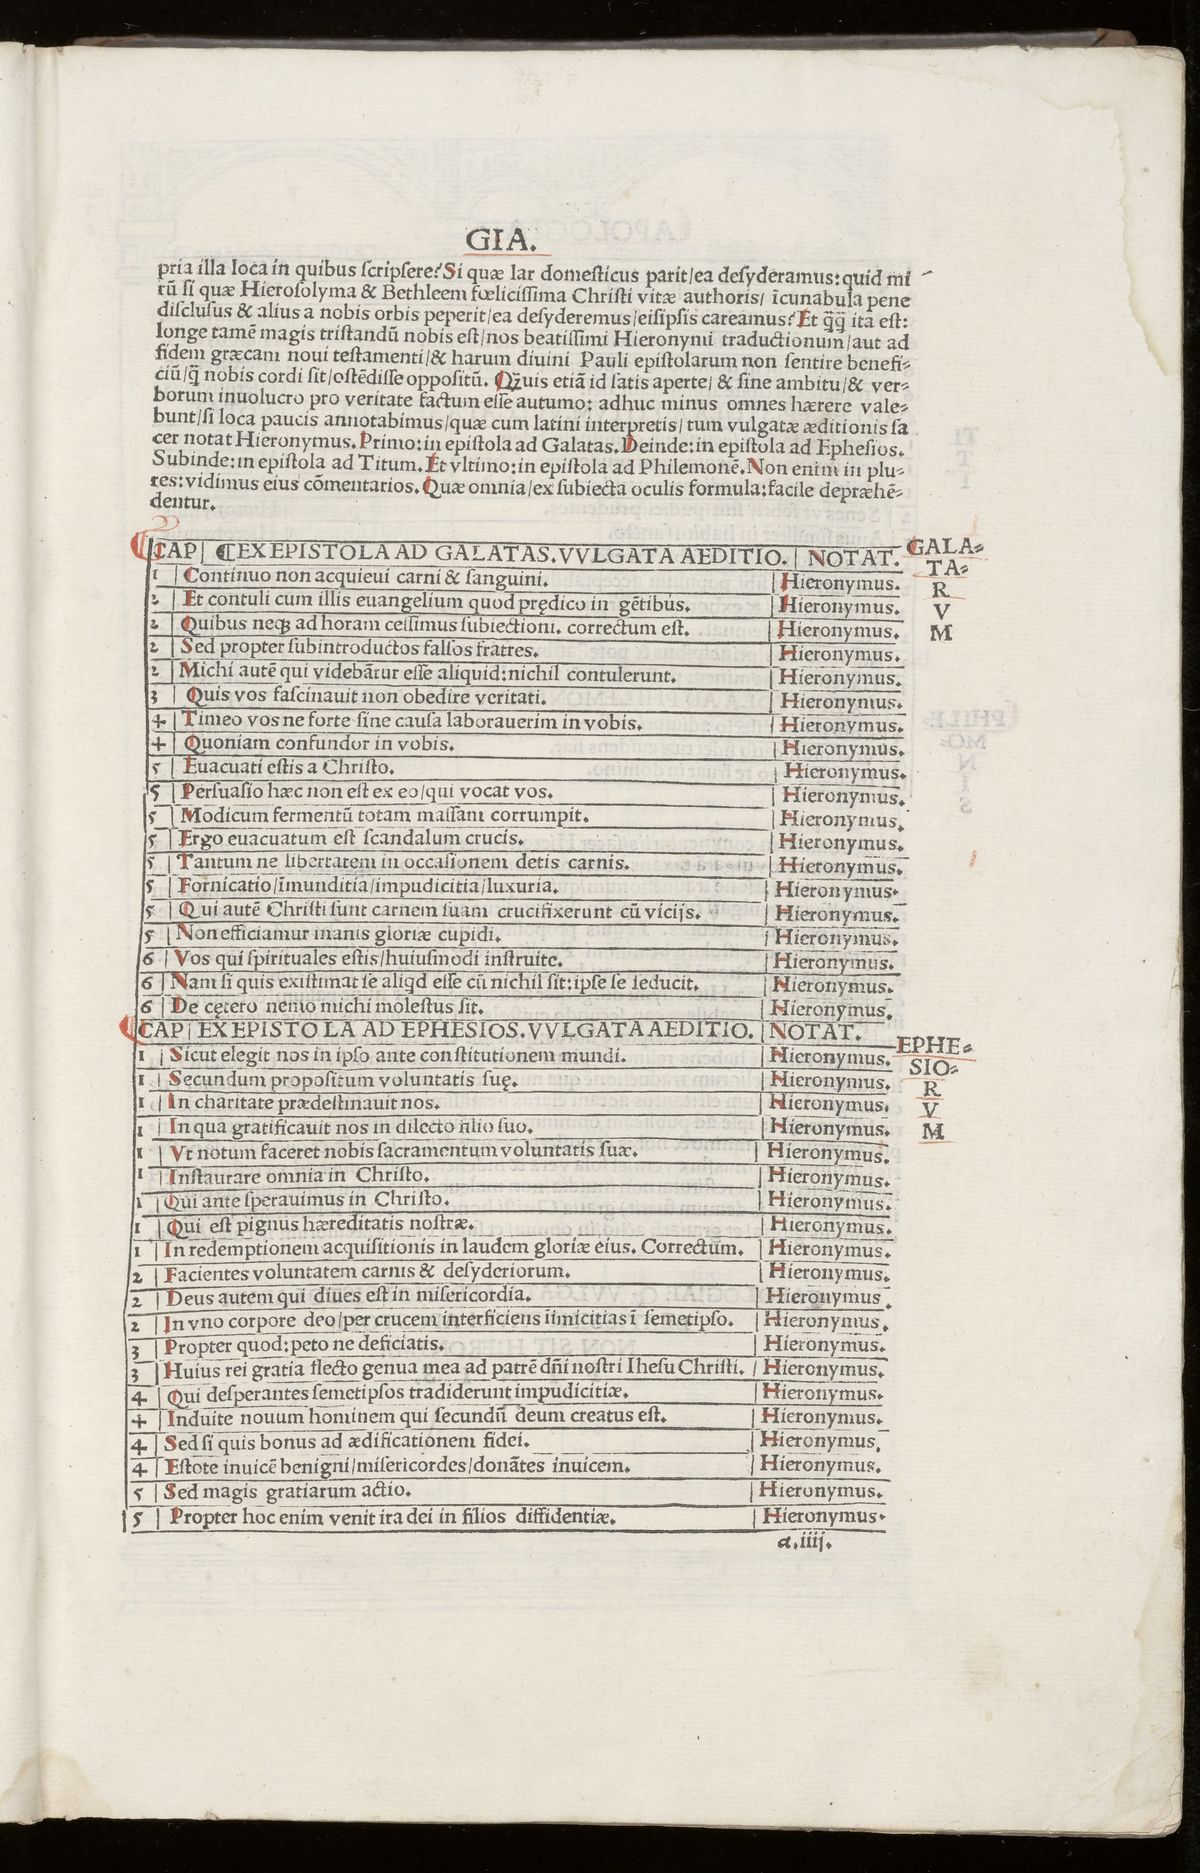 GIA.
pria illa loca in quibus scripsere? Si quæ lar domesticus parit/ea desyderamus: quid mi
rū si quæ Hierosolyma & Bethleem fœlicissima Christi vitæ authoris/ īcunabula pene
disclusus & alius a nobis orbis peperit/ea desyderemus/eisipsis careamus? Et q̄q̄ ita est:
longe tamē magis tristandū nobis est/nos beatissimi Hieronymi traductionum/aut ad
fidem græcam noui testamenti/& harum diuini Pauli epistolarum non sentire benefi-
ciū/q̄ nobis cordi sit/ostēdisse oppositū. Qāuis etiā id satis aperte/ & sine ambitu/& ver-
borum inuolucro pro veritate factum esse autumo: adhuc minus omnes hærere vale-
bunt/si loca paucis annotabimus/quæ cum latini interpretis/ tum vulgatæ æditionis sa
cer notat Hieronymus. Primo: in epistola ad Galatas. Deinde: in epistola ad Ephesios.
Subinde: in epistola ad Titum. Et vltimo: in epistola ad Philemonē. Non enim in plu-
res: vidimus eius cōmentarios. Quæ omnia/ex subiecta oculis formula: facile depræhē-
dentur.
CAP | ¶EX EPISTOLA AD GALATAS. VVLGATA AEDITIO. | NOTAT. GALA-
TA-
R
V
M
1 | Continuo non acquieui carni & sanguini. | Hieronymus.
2 | Et contuli cum illis euangelium quod prędico in gētibus. | Hieronymus.
2 | Quibus neqꝫ ad horam cessimus subiectioni. correctum est. | Hieronymus.
2 | Sed propter subintroductos falsos fratres. | Hieronymus.
2 | Michi autē qui videbātur esse aliquid: nichil contulerunt. | Hieronymus.
3 | Quis vos fascinauit non obedire veritati. | Hieronymus.
4 | Timeo vos ne forte sine causa laborauerim in vobis. | Hieronymus.
4 | Quoniam confundor in vobis. | Hieronymus.
5 | Euacuati estis a Christo. | Hieronymus.
5 | Persuasio hæc non est ex eo/qui vocat vos. | Hieronymus.
5 | Modicum fermentū totam massam corrumpit. | Hieronymus.
5 | Ergo euacuatum est scandalum crucis. | Hieronymus.
5 | Tantum ne libertatem in occasionem detis carnis. | Hieronymus.
5 | Fornicatio/īmunditia/impudicitia/luxuria. | Hieronymus.
5 | Qui autē Christi sunt carnem suam crucifixerunt cū vicijs. | Hieronymus.
5 | Non efficiamur inanis gloriæ cupidi. | Hieronymus.
6 | Vos qui spirituales estis/huiusmodi instruite. | Hieronymus.
6 | Nam si quis existimat se aliqd esse cū nichil sit: ipse se seducit. | Hieronymus.
6 | De cętero nemo michi molestus sit. | Hieronymus.
CAP | EX EPISTOLA AD EPHESIOS. VVLGATA AEDITIO. | NOTAT. EPHE-
SIO-
R
V
M
1 | Sicut elegit nos in ipso ante constitutionem mundi. | Hieronymus.
1 | Secundum propositum voluntatis suę. | Hieronymus.
1 | In charitate prædestinauit nos. | Hieronymus.
1 | In qua gratificauit nos in dilecto filio suo. | Hieronymus.
1 | Vt notum faceret nobis sacramentum voluntatis suæ. | Hieronymus.
1 | Instaurare omnia in Christo. | Hieronymus.
1 | Qui ante sperauimus in Christo. | Hieronymus.
1 | Qui est pignus hæreditatis nostræ. | Hieronymus.
1 | In redemptionem acquisitionis in laudem gloriæ eius. Correctum. | Hieronymus.
2 | Facientes voluntatem carnis & desyderiorum. | Hieronymus.
2 | Deus autem qui diues est in misericordia. | Hieronymus.
2 | In vno corpore deo/per crucem interficiens inimicitias ī semetipso. | Hieronymus.
3 | Propter quod: peto ne deficiatis. | Hieronymus.
3 | Huius rei gratia flecto genua mea ad patrē dn̄i nostri Ihesu Christi. | Hieronymus.
4 | Qui desperantes semetipsos tradiderunt impudicitiæ. | Hieronymus.
4 | Induite nouum hominem qui secundū deum creatus est. | Hieronymus.
4 | Sed si quis bonus ad ædificationem fidei. | Hieronymus.
4 | Estote inuicē benigni/misericordes/donātes inuicem. | Hieronymus.
5 | Sed magis gratiarum actio. | Hieronymus.
5 | Propter hoc enim venit ira dei in filios diffidentiæ. | Hieronymus.
a.iiij.